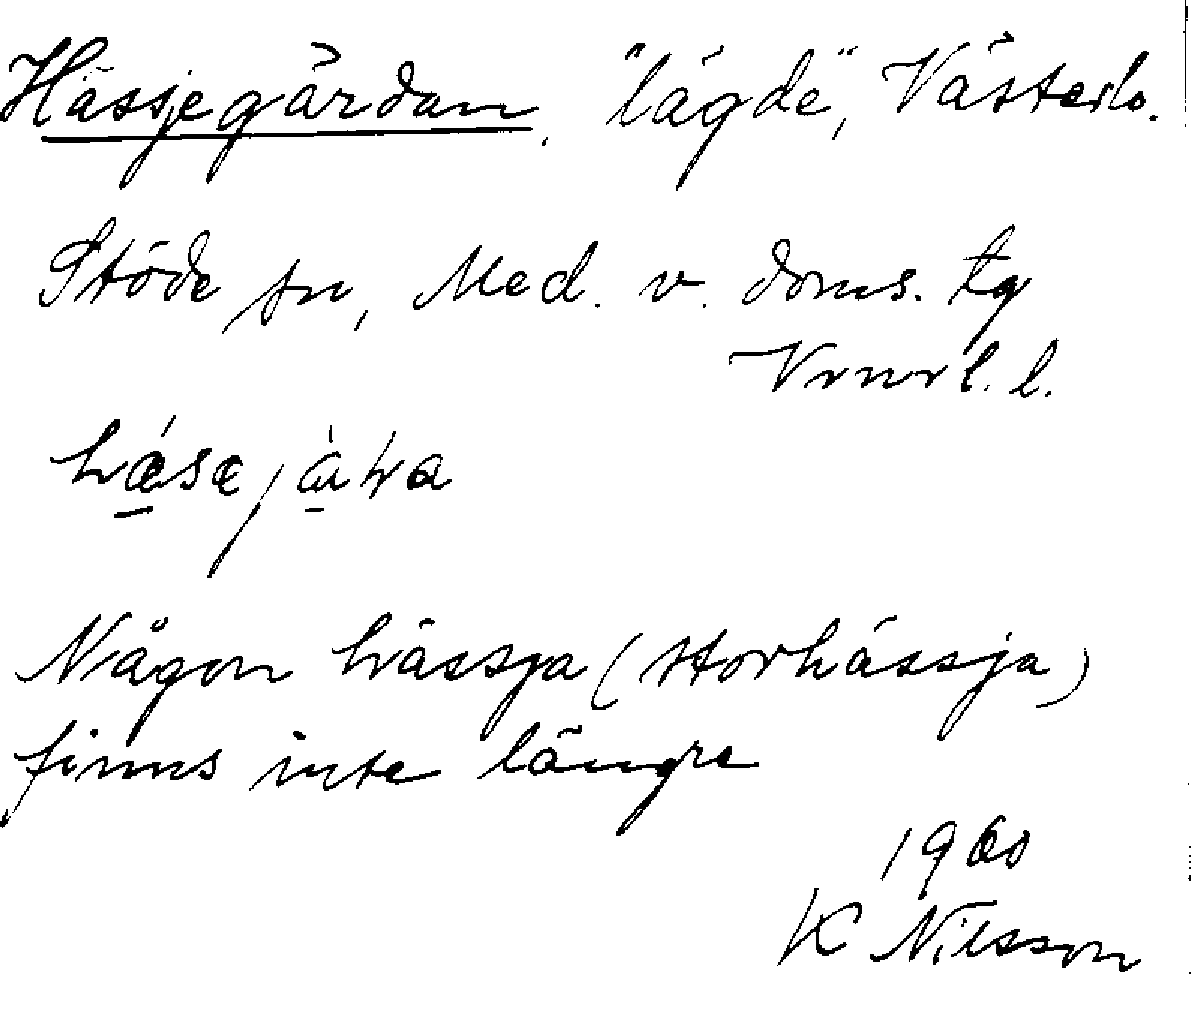 Hässjegårdan, "lägde", Västerlo.
Stöde sn, Med. v. doms. tg
hæsejåra
Någon hässja (storhässja)
finns inte längre
1960
K Nilsson